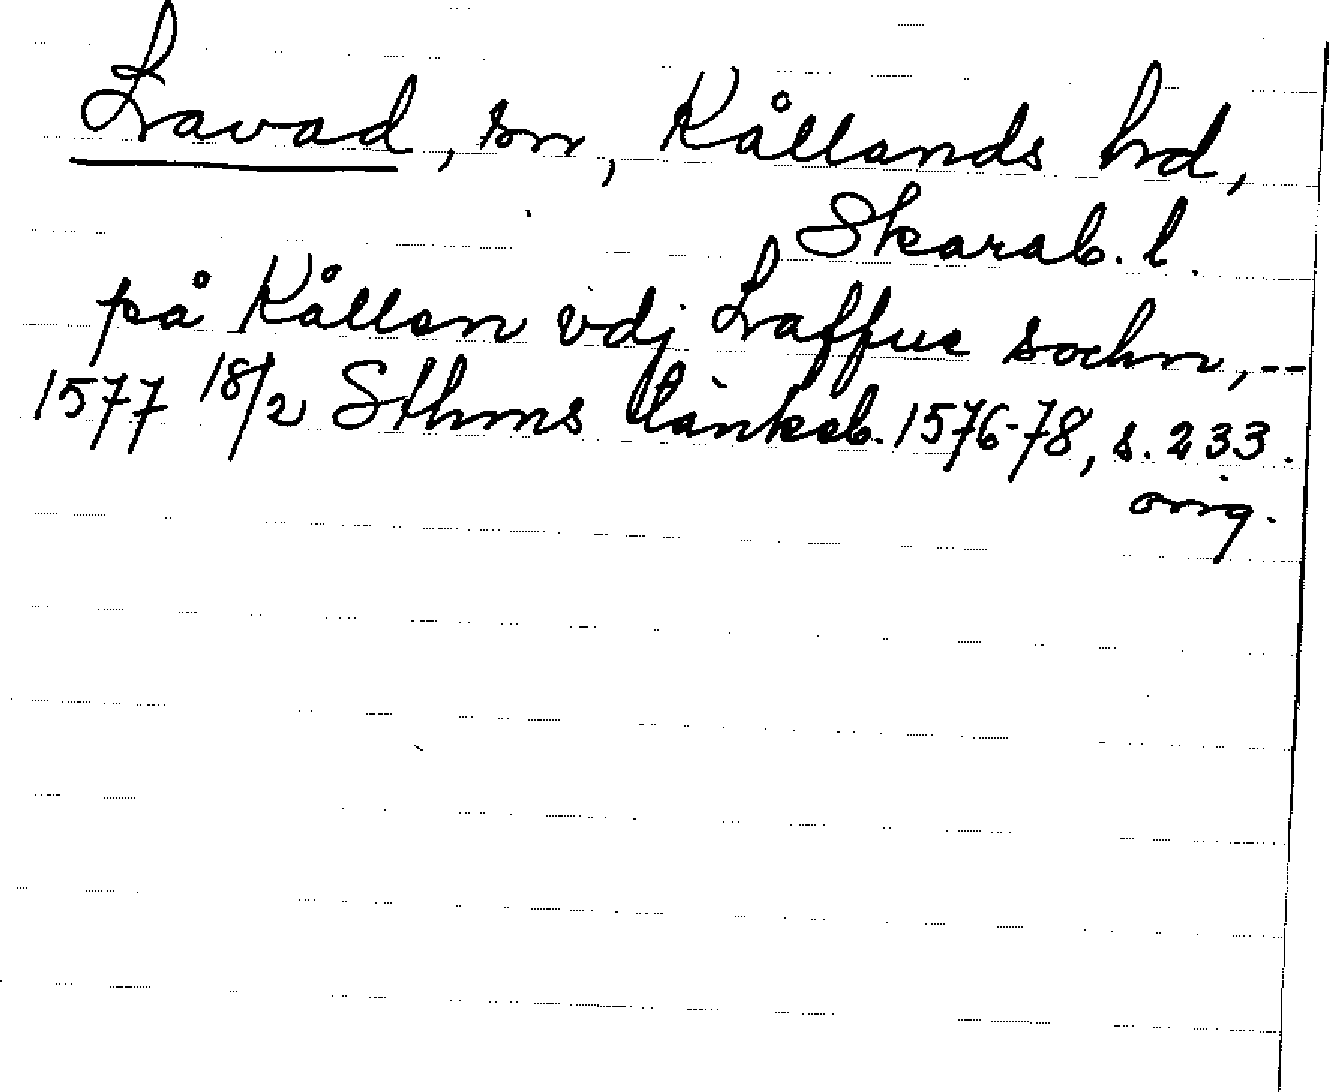 Lavad, sn, Kållands hd,
Skarab. l.
på Kållen vdj Laffue sochn, --
1577 18/2 Sthms tänkeb. 1576-78, s. 233.
orig.